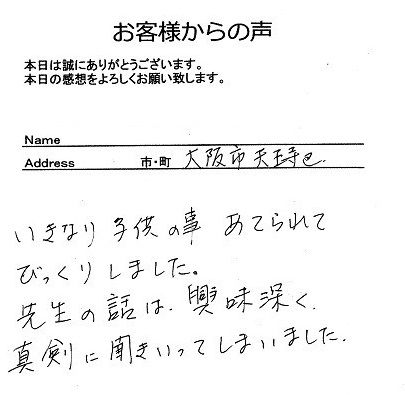 お客様からの声
本日は誠にありがとうございます。
本日の感想をよろしくお願い致します。
Name
Address 市・町 大阪市天王寺区
いきなり子供の事 あてられて
びっくりしました。
先生の話は、興味深く、
真剣に聞きいってしまいました。